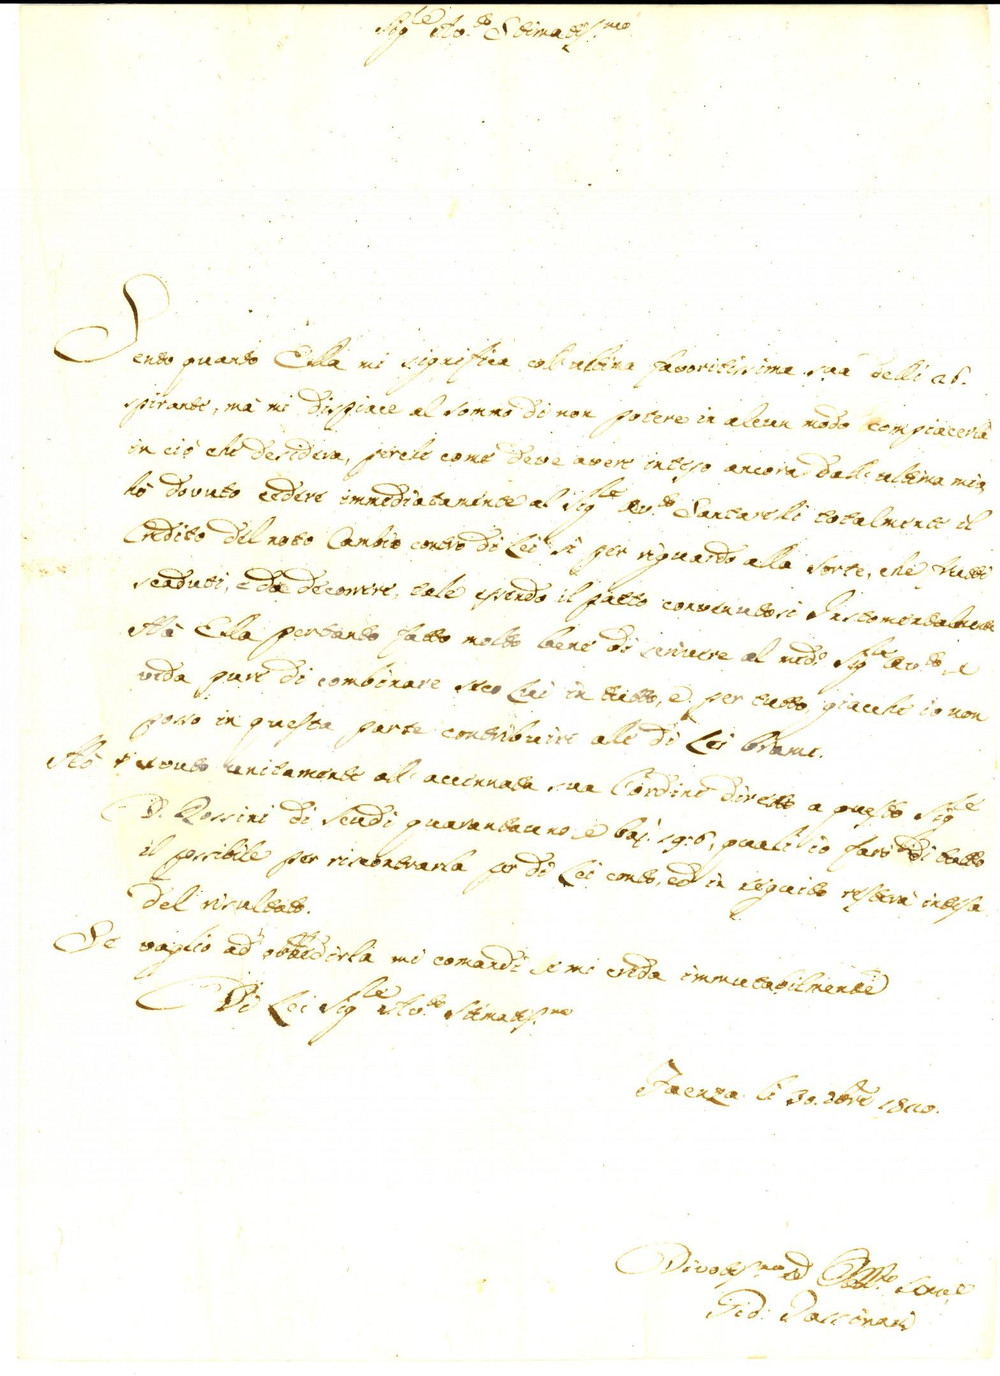 Sig.le Av.to Stimatiss.mo
Sento quanto Ella mi significa coll'ultima favoritissima sua delli 26.
spirante, mà mi dispiace al sommo di non potere in alcun modo compiacerla
in ciò che desidera, perche come deve avere inteso ancora dall'ultima mia
hò dovuto cedere immediatamente al Sig.le Av.to Santarelli totalmente il
Credito del noto Cambio contro di Lei sì per riguardo alla sorte, che frutti
scaduti, e da decorrere, tale essendo il patto convenutosi
Hà Ella pertanto fatto molto bene di scrivere al med.o Sig.le Av.to, e
veda pure di combinare seco Lui in tutto, e per tutto, giacchè io non
posso in questa parte contribuire alle di Lei brame.
Hò ricevuto unitamente all'accennata sua l'ordine diretto a questo Sig.le
D. Rossini di scudi quarantauno e baj. 19:6, quali io farò di tutto
il possibile per riscontrarla p di Lei conto, ed in seguito resterà intesa
del risultato.
Se vaglio ad obbedirla mi comandi e mi creda immutabilmente
Di Lei Sig.le Av.to Stimatiss.mo
Faenza li 30. 1810.
Divotiss.mo ed Obbl.mo Serv.e